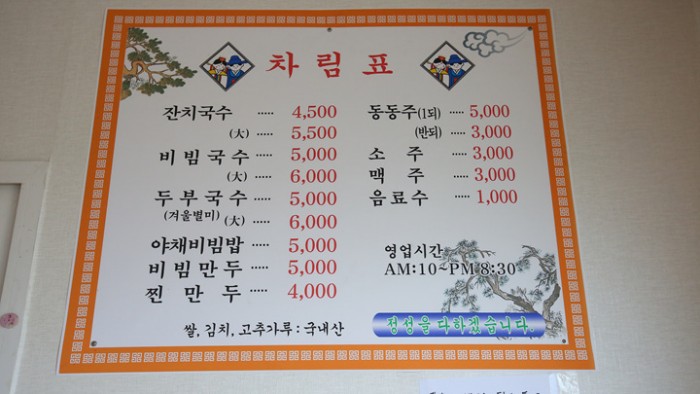 차림표
잔치국수 ····· 4,500
(大) ···· 5,500
비빔국수 ····· 5,000
(大) ···· 6,000
두부국수 ····· 5,000
(겨울별미) (大) ···· 6,000
야채비빔밥 ····· 5,000
비빔만두 ····· 5,000
찐만두 ····· 4,000
쌀, 김치, 고추가루 : 국내산
동동주(1되) ····· 5,000
(반되) ···· 3,000
소주 ····· 3,000
맥주 ····· 3,000
음료수 ····· 1,000
영업시간
AM:10~PM 8:30
정성을 다하겠습니다.